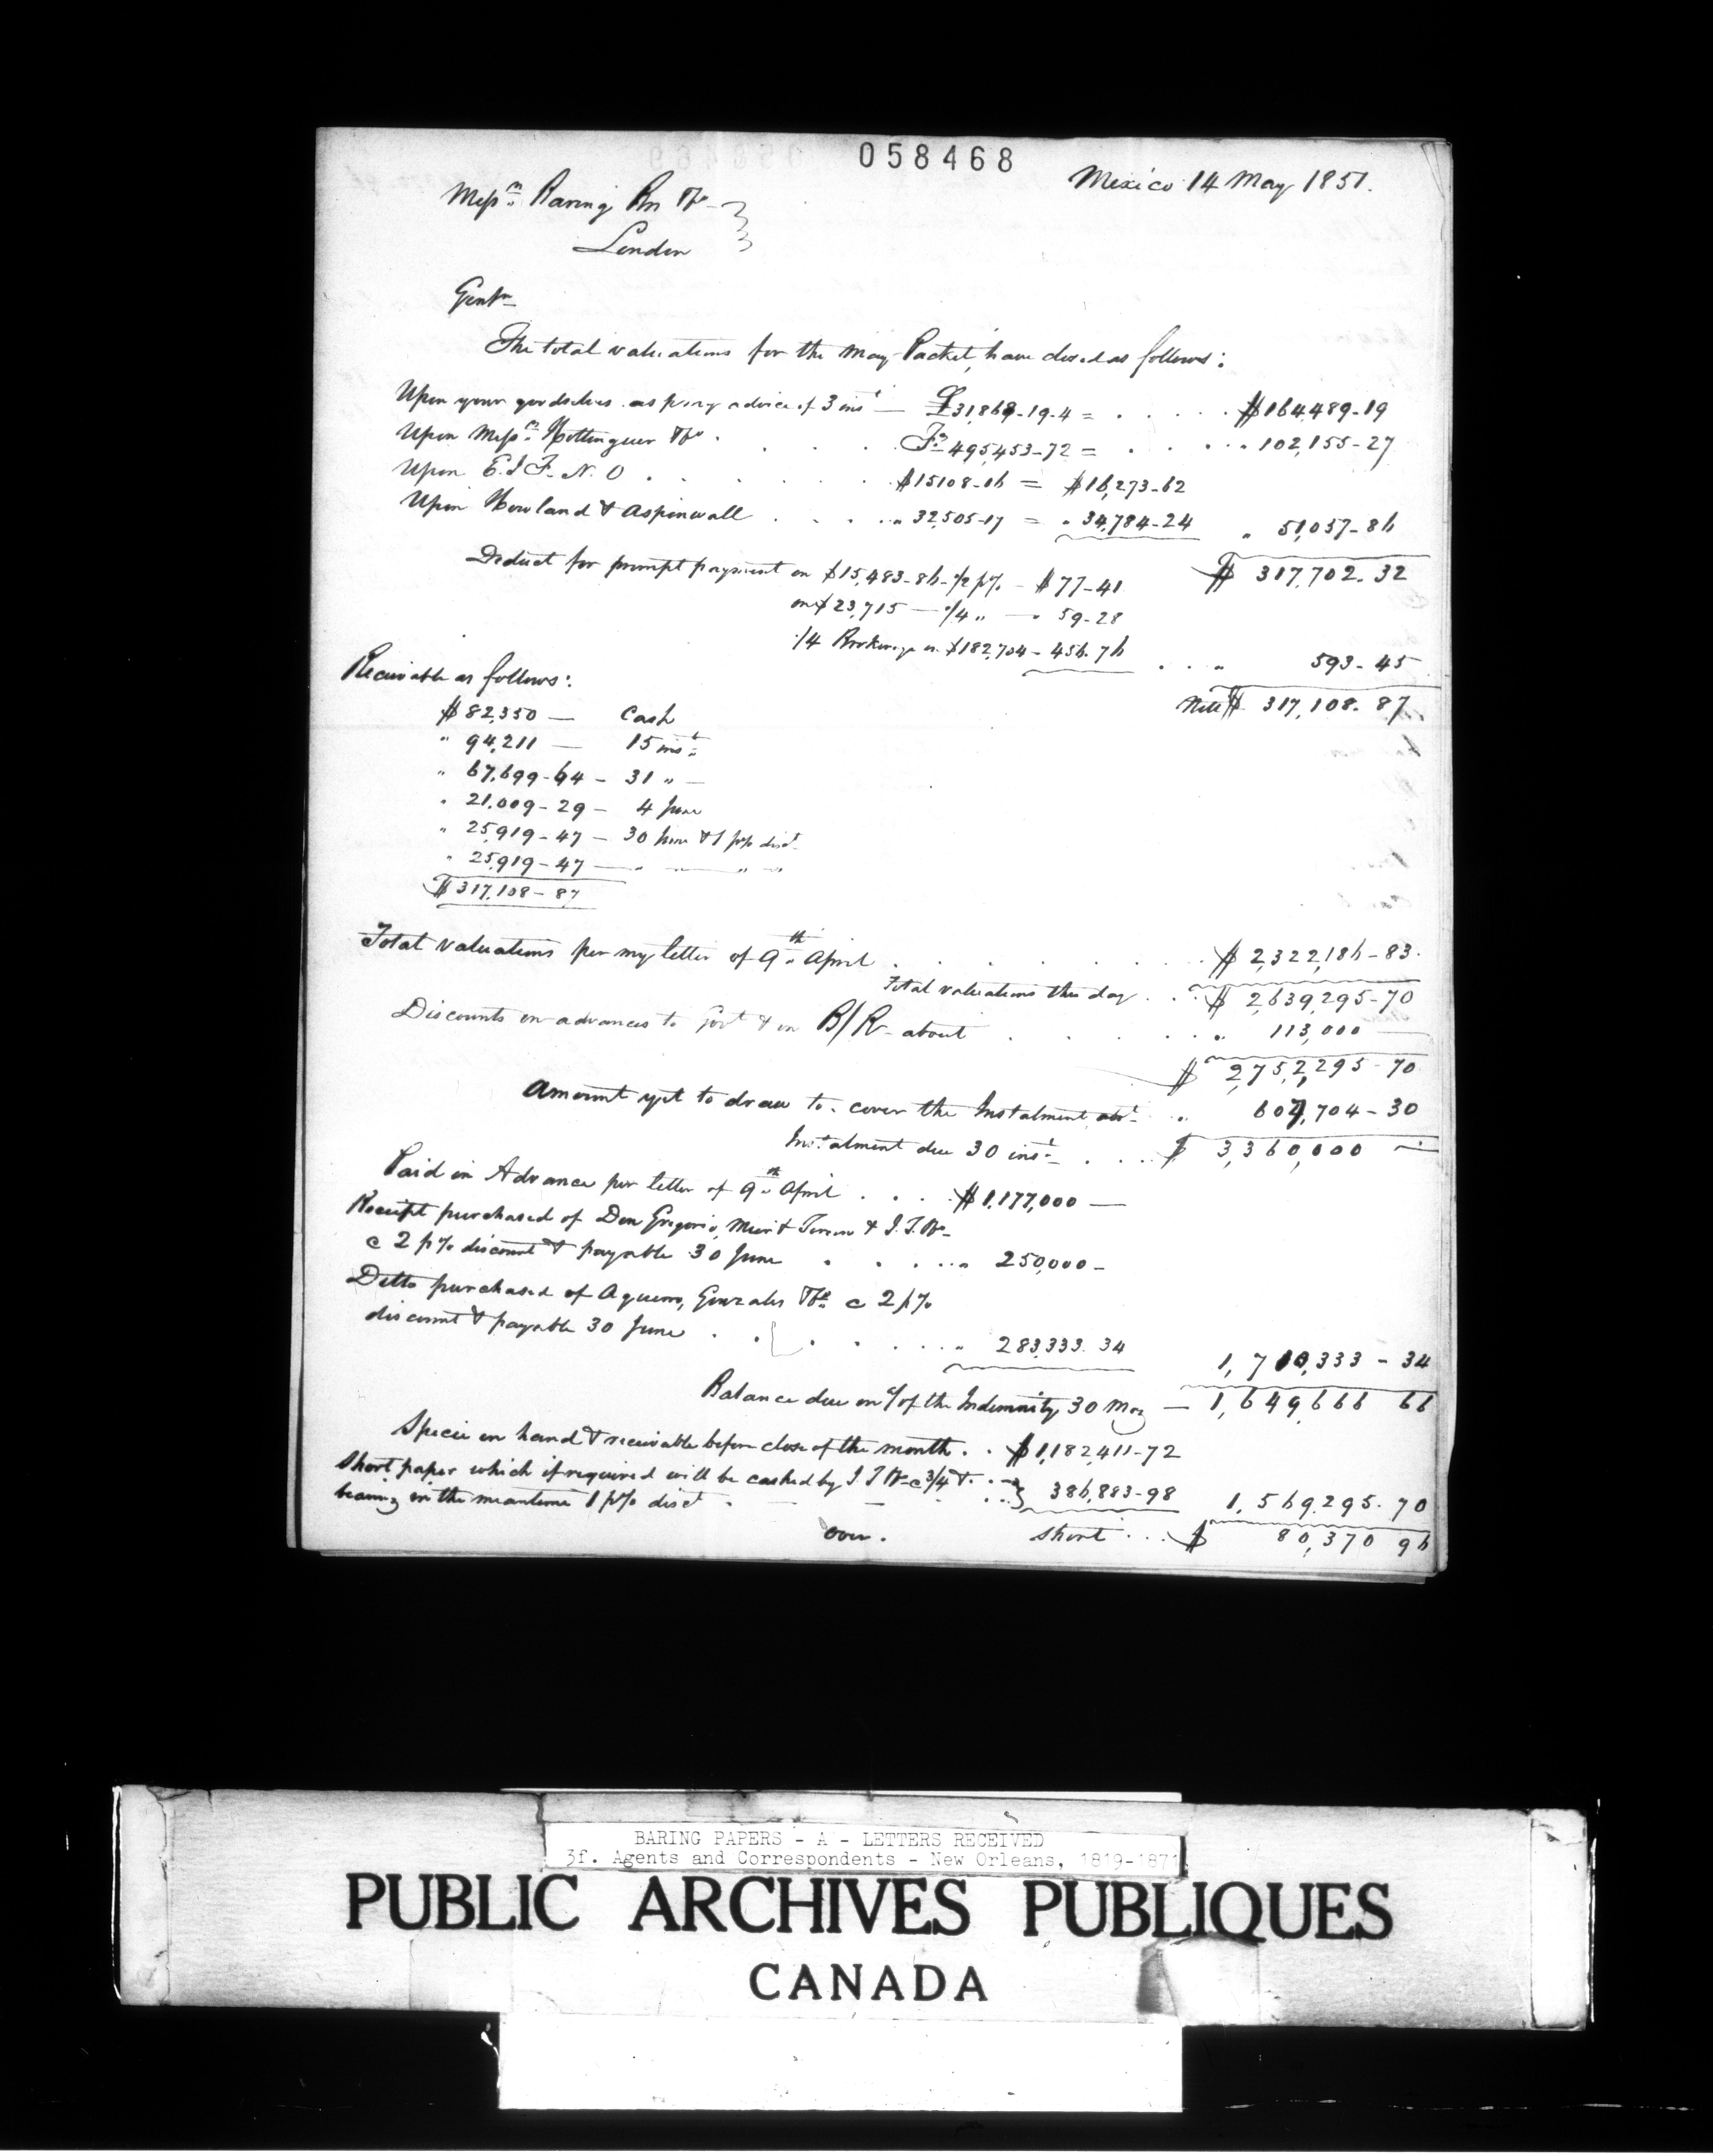 058468
Mexico 14 May 1851.
Messrs Baring Brs & Co
London
Gentn
The total valuations for the May Packet, have closed as follows:
Upon your goodselves as p my advice of 3 inst — £31,869-19-4 = . . . . . $164,489-19
Upon Messrs Hottinguer & Co . . . . Fs 495,453-72 = . . . . " 102,155-27
Upon E.J.F. N.O . . . . . . $15108-16 = $16,273-62
Upon Howland & Aspinwall . . . . " 32,505-17 = " 34,784-24 " 51,057-86
$ 317,702.32
Deduct for prompt payment on $15,483-86-1/2 p% - $77-41
on $23,715 — 1/4 " — " 59-28
1/4 Brokerage on $182,704 - 456.76 . . . " 593-45
Nett $ 317,108.87
Receivable as follows:
$82,350 — Cash
" 94,211 — 15 inst
" 67,699-64 - 31 " —
" 21,009-29 - 4 June
" 25,919-47 - 30 June & 1 p% disct
" 25,919-47 — " — " "
$317,108-87
Total valuations per my letter of 9th April . . . . . . $2,322,186-83.
Total valuations this day . . . $ 2,639,295-70
Discounts on advances to Govt & on B/R- about . . . . . " 113,000 —
$ 2,752,295-70
Amount yet to draw to cover the Instalment abt " 607,704-30
Instalment due 30 inst . . . $ 3,360,000 —
Paid in Advance per letter of 9th April . . . $1,177,000 —
Receipt purchased of Don Gregorio, Mier & Teran &
c 2 p% discount & payable 30 June . . . . " 250,000-
Ditto purchased of Aguero, Gonzales & Co c 2 p%
discount & payable 30 June . . . . . . . " 283,333.34 1,710,333-34
Balance due on a/c of the Indemnity 30 May — 1,649,666 66
Specie on hand & receivable before close of the month . . $1,182,411-72
Short paper which if required will be cashed by c 3/4 &
bearing in the meantime 1 p% disct . — — . . . 386,883-98 1,569,295.70
over. short . . . $ 80,370 96
BARING PAPERS - A - LETTERS RECEIVED
3f. Agents and Correspondents - New Orleans, 1819-1871
PUBLIC ARCHIVES PUBLIQUES
CANADA